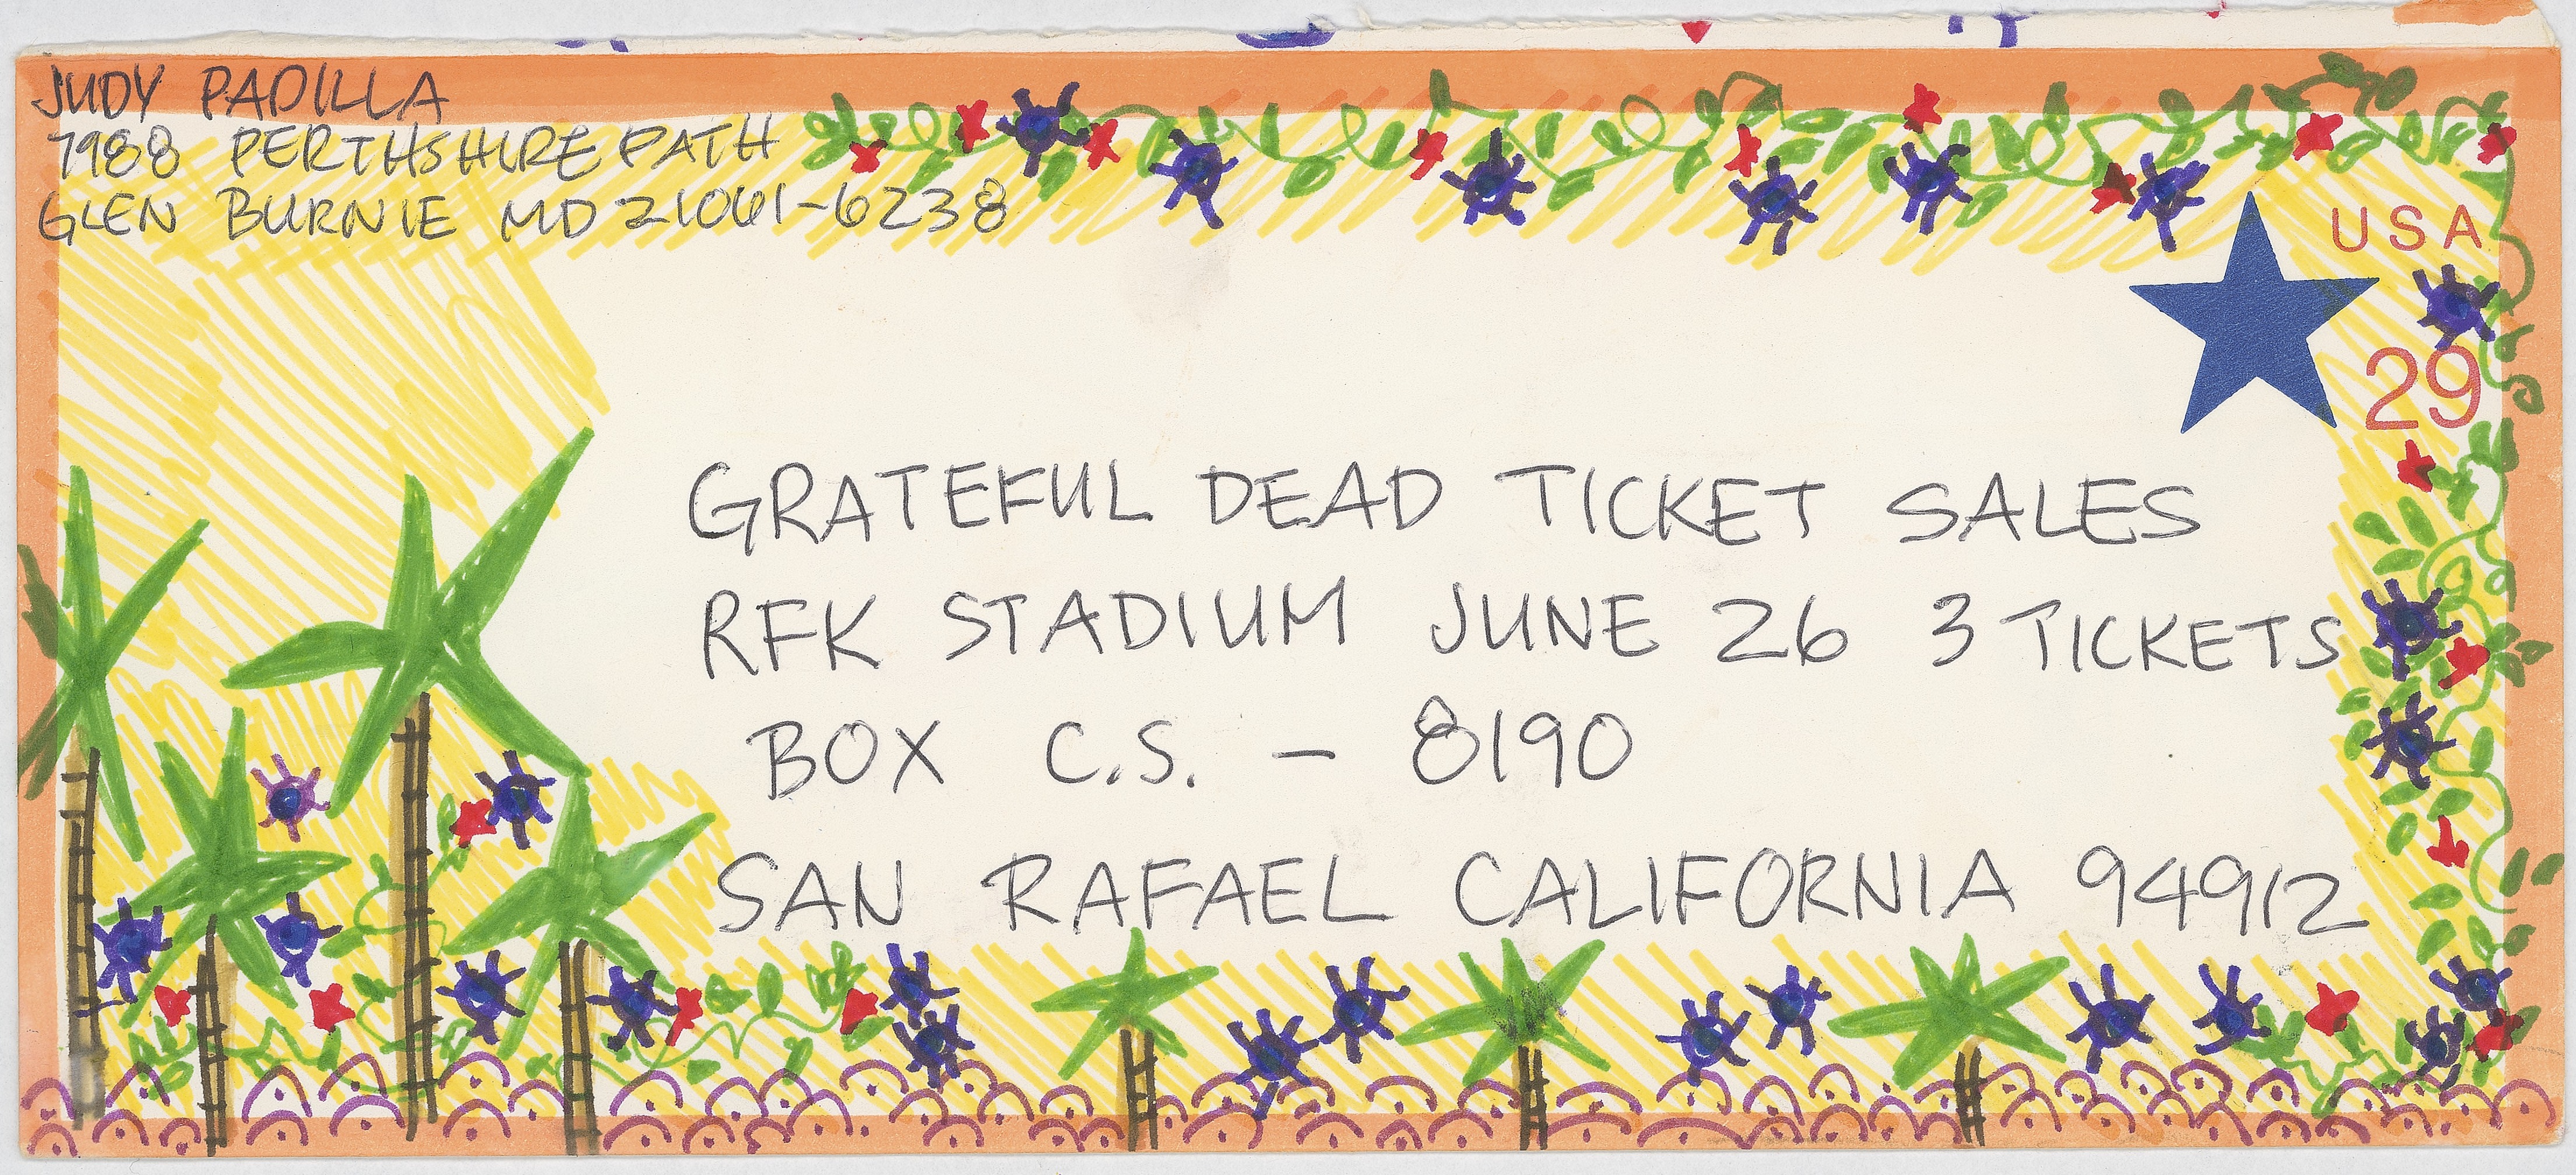 JUDY PADILLA
7988 PERTHSHIRE PATH
GLEN BURNIE MD 21061-6238
USA
29
GRATEFUL DEAD TICKET SALES
RFK STADIUM JUNE 26 3 TICKETS
BOX C.S. - 8190
SAN RAFAEL CALIFORNIA 94912